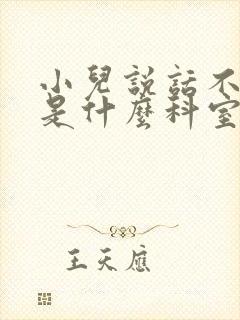 小兒説話不
是什麽科室
王天應